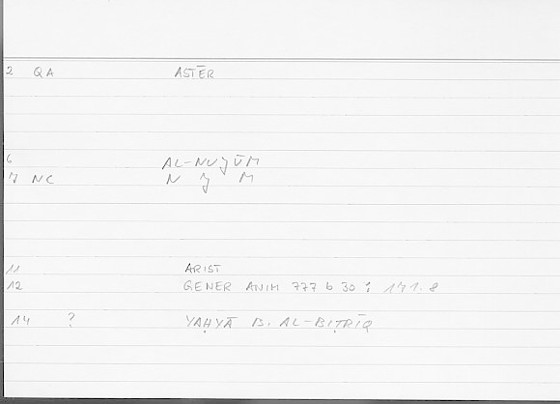 2 QA ASTĒR
6 AL-NUǧŪM
7 NC N ǧ M
11 ARIST
12 GENER ANIM 777 b 30 ; 171.8
14 ? YAḤYĀ B. AL-BIṬRĪQ